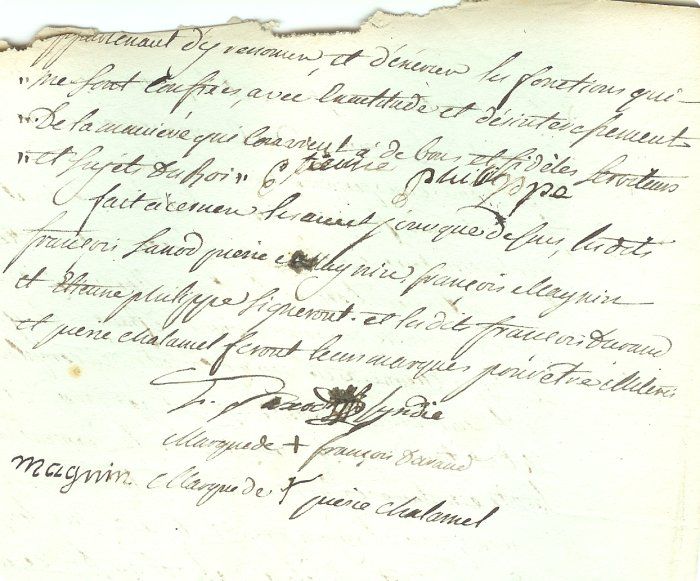 appartenant d'y renomer, et d'énércer les fonctions qui
" me sont confiées, avec Exactitude et désinteressement
" De la maniere qui Convient a de bons et fidèles serviteurs
" et sujets du Roi " Etienne philippe
fait ciceméen les an et jour que desus, lesdits
françois Sanod pierre Magnin, françois Magnin
et Etienne philippe signeront. et lesdit françois Durand
et pierre chalamel feront leurs marques pour etre illiteres
F. Sanod Syndic
Marque de + françois Durand
magnin Marque de + pierre chalamel